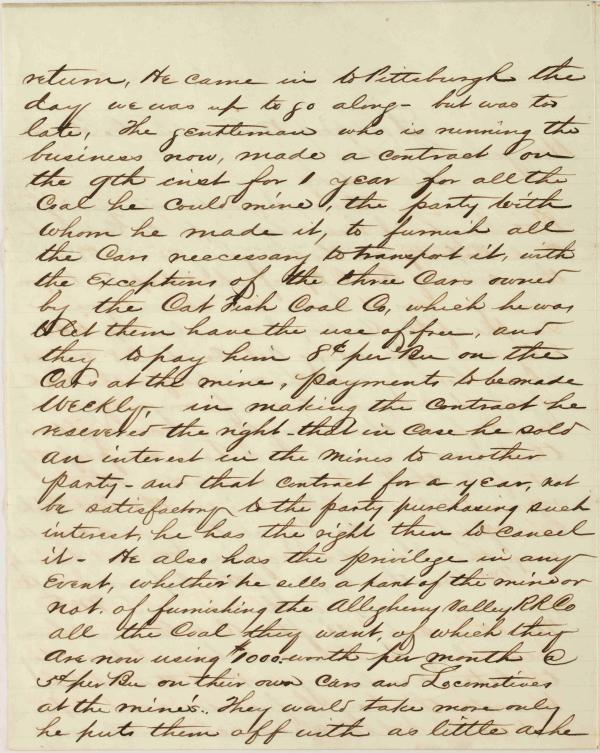 return, He came in to Pittsburgh the
day we was up to go along - but was to
late, The gentleman who is running the
business now, made a contract on
the 9th inst for 1 year for all the
Coal he could mine, the party with
whom he made it, to furnish all
the Cars neccessary to transport it, with
the Exceptions of the three Cars owned
by the Cat Fish Coal Co, which he was
to let them have the use of free, and
they to pay him 8¢ per Bu on the
Cars at the mine, payments to be made
Weekly, in making the contract he
resevered the right - that in case he sold
an interest in the mines to another
party - and that contract for a year, not
be satisfactory to the party purchasing such
interest, he has the right then to cancel
it - He also has the privilege in any
Event, whether he sells a part of the mine or
not. of furnishing the Allegheny Valley RR Co
all the Coal they want, of which they
are now using $1000 worth per month @
5¢ per Bu on their own Cars and Locomotives
at the mine. They would take more only
he puts them off with as little as he